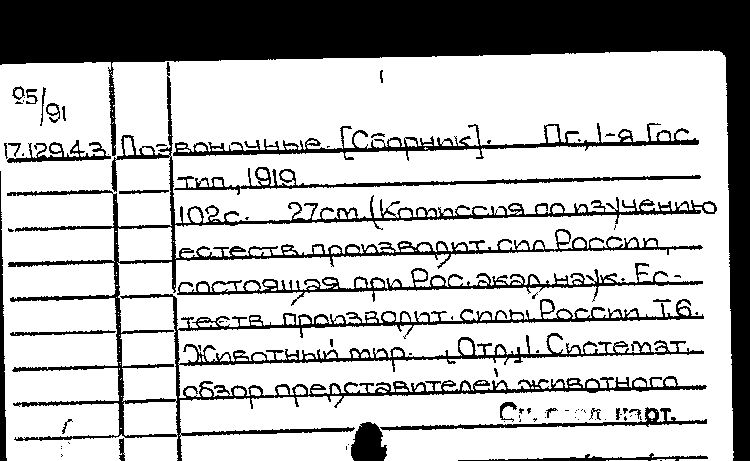 95/91
17.129.4.3 Позвоночные. [Сборник]. Пг., 1-я Гос.
тип., 1919.
102с. 27см. (Комиссия по изучению
естеств. производит. сил России,
состоящая при Рос. акад. наук. Ес-
теств. производит. силы России. Т.6.
Животный мир. [Отд.] 1. Системат.
обзор представителей животного
См. след. карт.